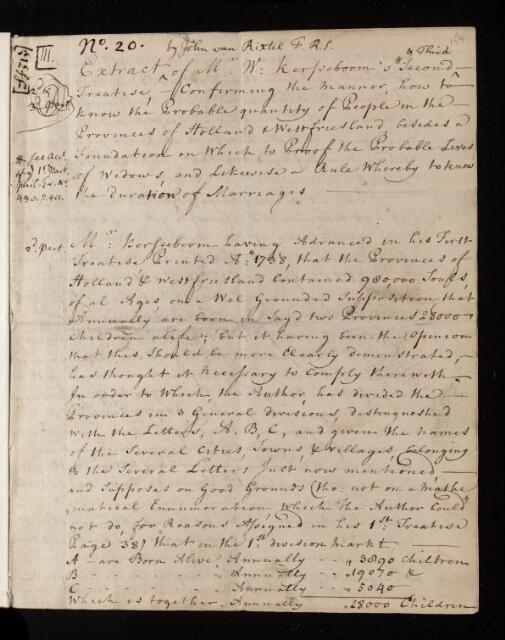 No. 20. by John van Rixtel F R.S. & Third
III.
Extract of Mr. Wm. Kersseboom's Second
Treatise, Confirming the Manner, how to
know the Probable quantity of People in the
Provinces of Holland & Westfriesland, besides a
Foundation on Which to Proof the Probable Lives
of Widows, and Likewise a Rule Whereby to know
the duration of Marriages
# See Acct.
of ye 1st Part,
Phil. Tr. No.
450. p. 401.
2d. Part.
Mr. Kersseboom having Advanced in his First
Treatise Printed Ao. 1738, that the Provinces of
Holland & Westfriesland Contained 980,000 Souls,
of al Ages, on a Wel Grounded Supposition that
Annually are born in Sayd two Provinces 28000
Children alife; but it having been the Opinion
that this Should be more Clearly demonstrated,
has thought it Necessary to Comply therewith
In order to Which, the Author, has divided the
Provinces in 3 General divisions, destingueshed
with the Letters, A. B, C, and given the Names
of the Several Cities, Towns, & Villages, belonging
to the Several Letters Just now mentioned,
and Supposes on Good Grounds (tho: not on a Mathe
matical Ennumeration, Which The Author Could
not do, for Reasons Assigned in his 1st. Treatise
Page 38) that in the 1st division Markt
A - are Born Alive Annually " 3890 Children
B Annually " 19070 &
C Annually " 5040
Which is together Annually 28000 Children